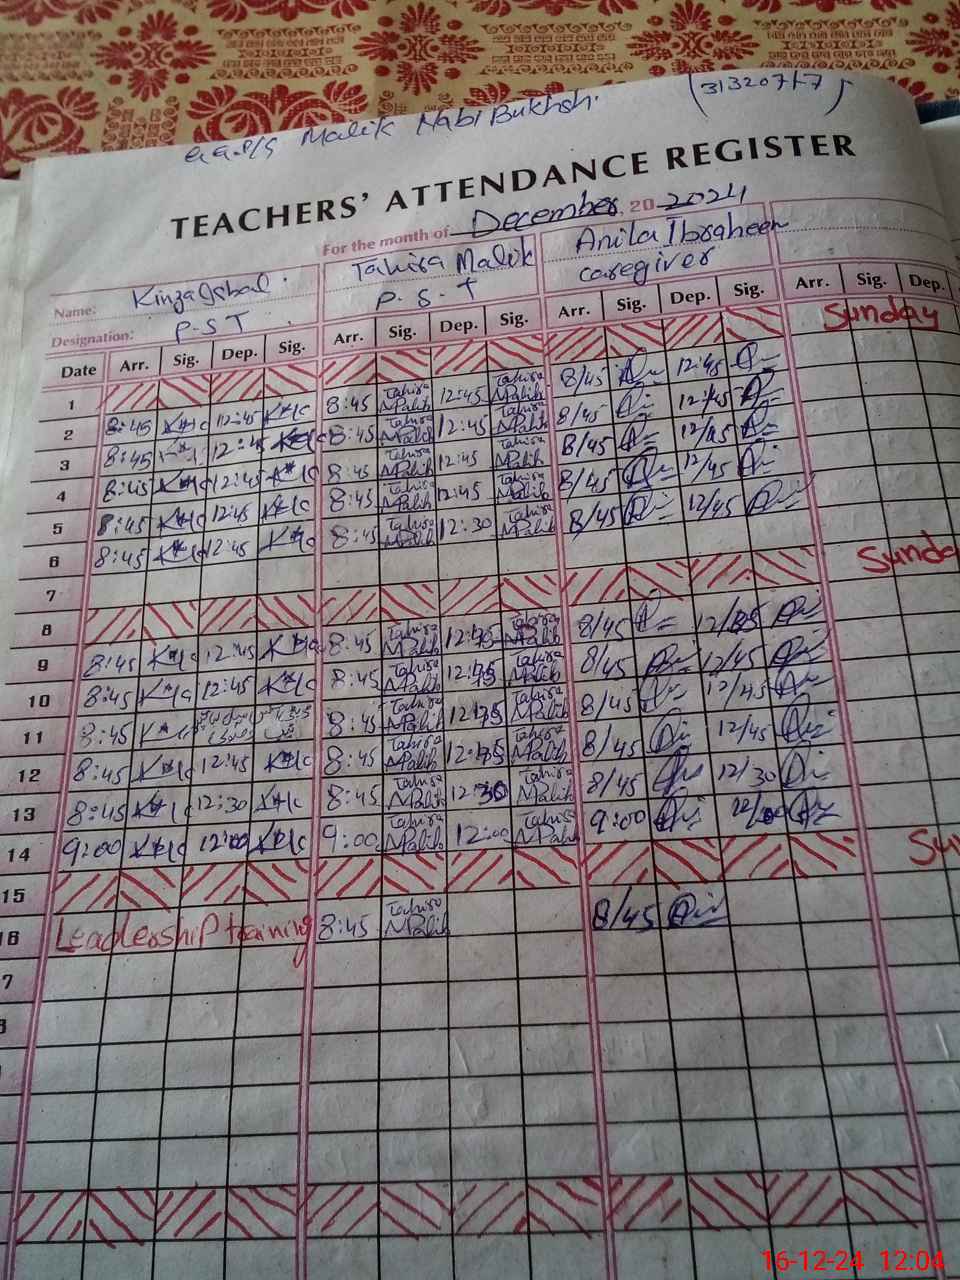 G.G.P/S Malik Nabi Bukhsh. (31320717)
TEACHERS' ATTENDANCE REGISTER
For the month of December, 20 2024
Name: Kinza Iqbal. Tahira Malik Anila Ibraheem
Designation: P-ST P.S.T caregiver
Date Arr. Sig. Dep. Sig. Arr. Sig. Dep. Sig. Arr. Sig. Dep. Sig. Arr. Sig. Dep.
1 Sunday
2 8:45 12:45 8:45 Tahira Malik 12:45 Tahira Malik 8/45 12:45
3 8:45 12:45 8:45 Tahira Malik 12:45 Tahira Malik 8/45 12:45
4 8:45 12:45 8:45 Tahira Malik 12:45 Tahira Malik 8/45 12/45
5 8:45 12:45 8:45 Tahira Malik 12:45 Tahira Malik 8/45 12/45
6 8:45 12:45 8:45 Tahira Malik 12:30 Tahira Malik 8/45 12/45
7
8 Sunda
9 8:45 12:45 8:45 Tahira Malik 12:45 Tahira Malik 8/45
10 8:45 12:45 8:45 Tahira Malik 12:45 Tahira Malik 8/45 12/45
11 8:45 8:45 Tahira Malik 12:45 Tahira Malik 8/45 12/45
12 8:45 12:45 8:45 Tahira Malik 12:45 Tahira Malik 8/45 12/45
13 8:45 12:30 8:45 Tahira Malik 12:30 Tahira Malik 8/45 12/30
14 9:00 12:00 9:00 Tahira Malik 12:00 Tahira Malik 9:00 12/00
15 Su
16 Leadership training 8:45 Tahira Malik 8/45
7
16-12-24 12:04